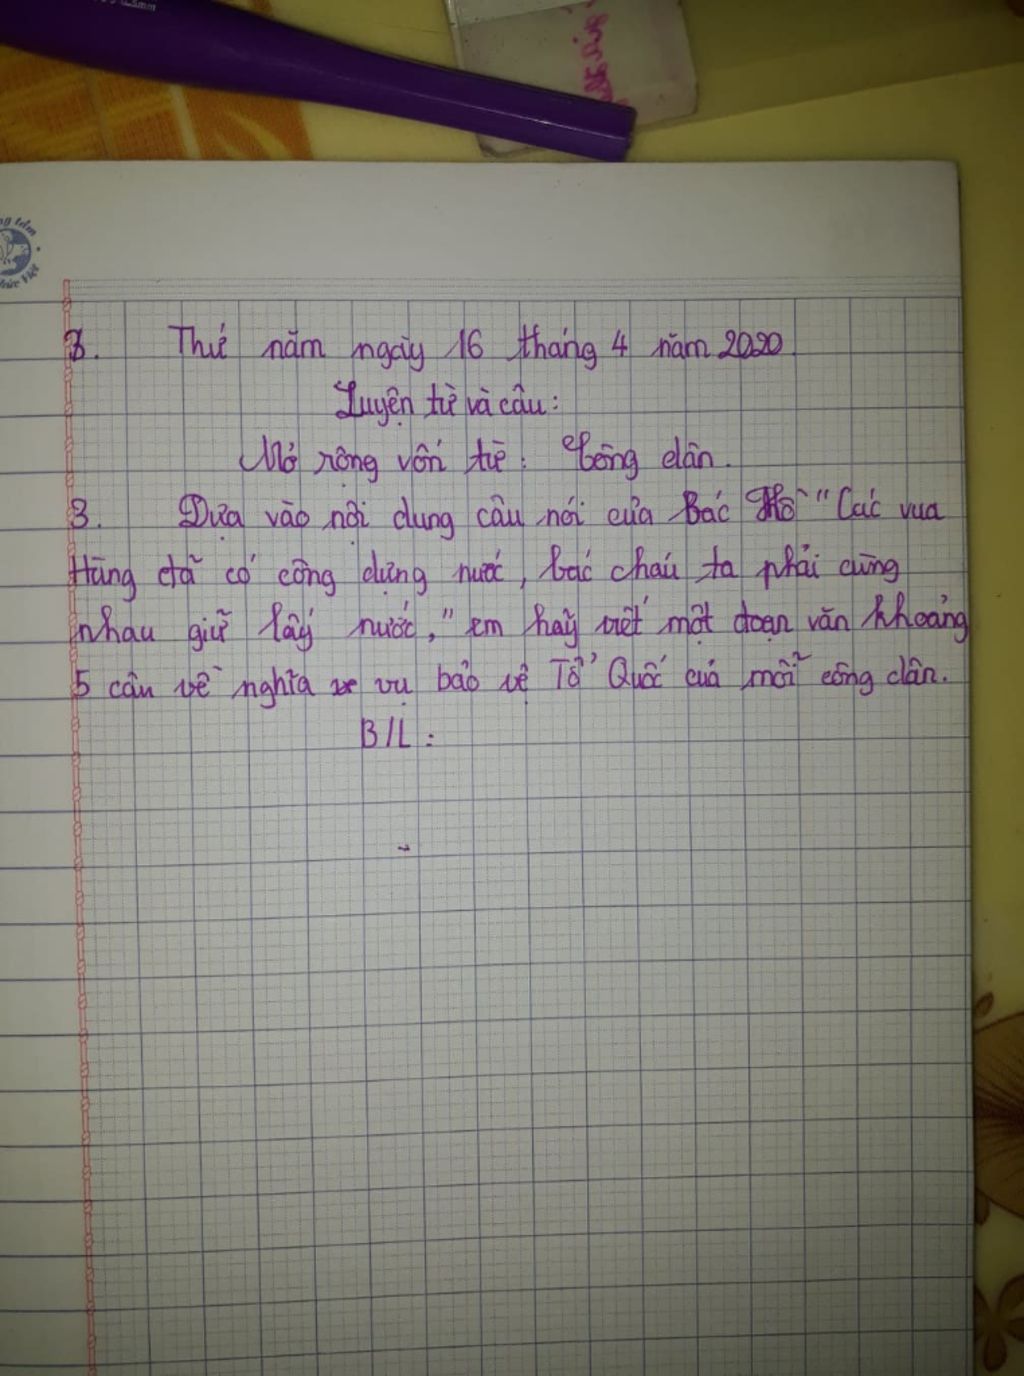 0.5mm
3. Thứ năm ngày 16 tháng 4 năm 2020
Luyện từ và câu:
Mở rộng vốn từ: Công dân.
3. Dựa vào nội dung câu nói của Bác Hồ "Các vua
Hùng đã có công dựng nước, bác cháu ta phải cùng
nhau giữ lấy nước," em hãy viết một đoạn văn khoảng
5 câu về nghĩa ve vụ bảo vệ Tổ Quốc của mỗi công dân.
B/L: